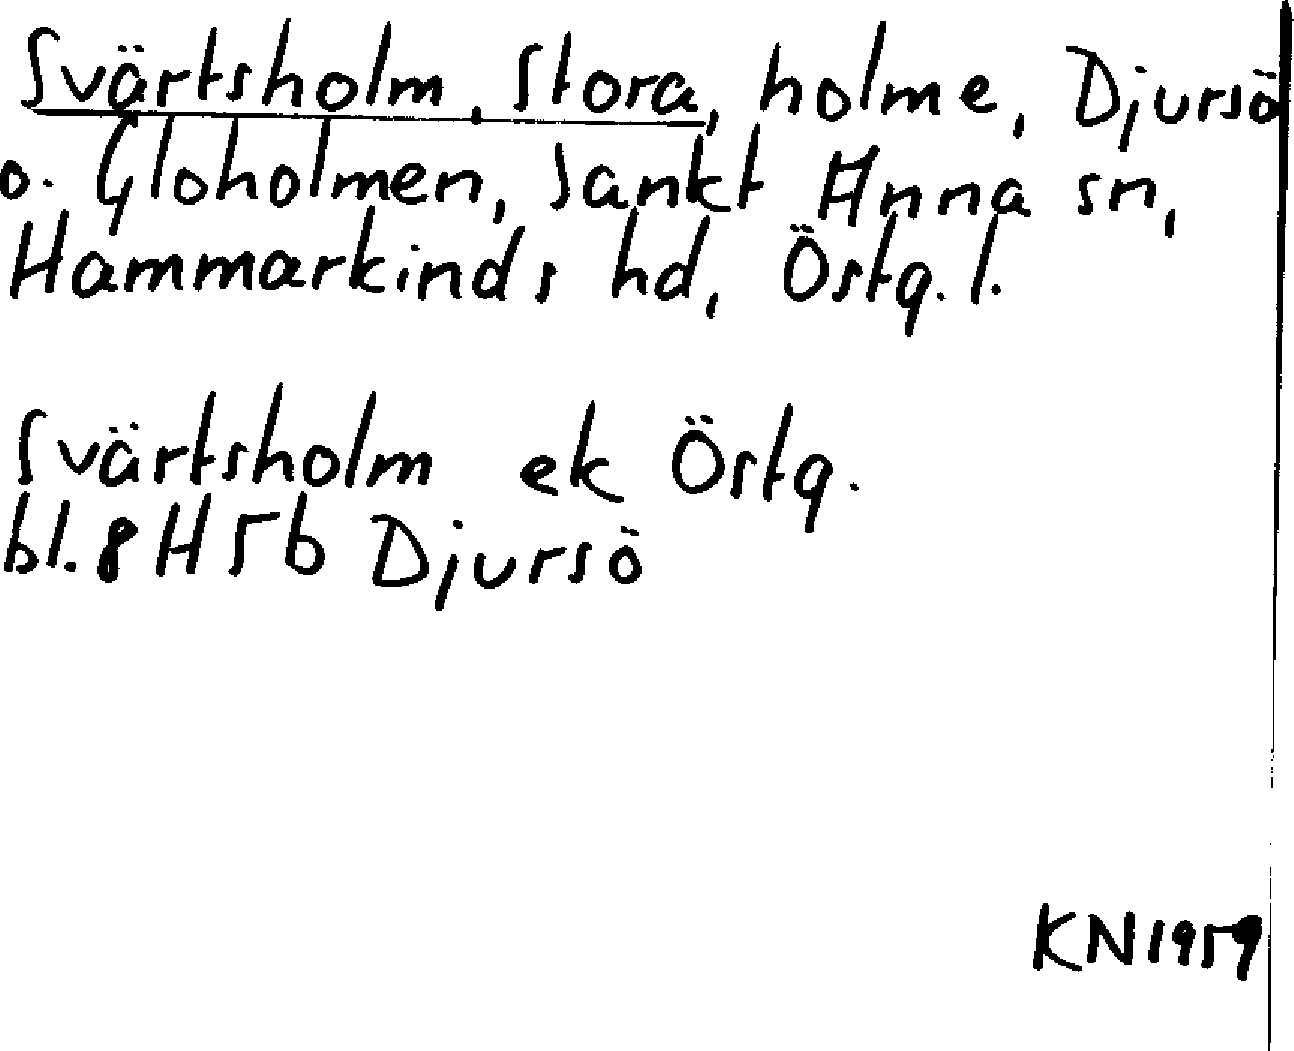 Svärtsholm, Stora, holme, Djursö
o. Gloholmen, Sankt Anna sn,
Hammarkinds hd, Östg. l.
Svärtsholm ek Östg.
bl. 8H5b Djursö
KN1959